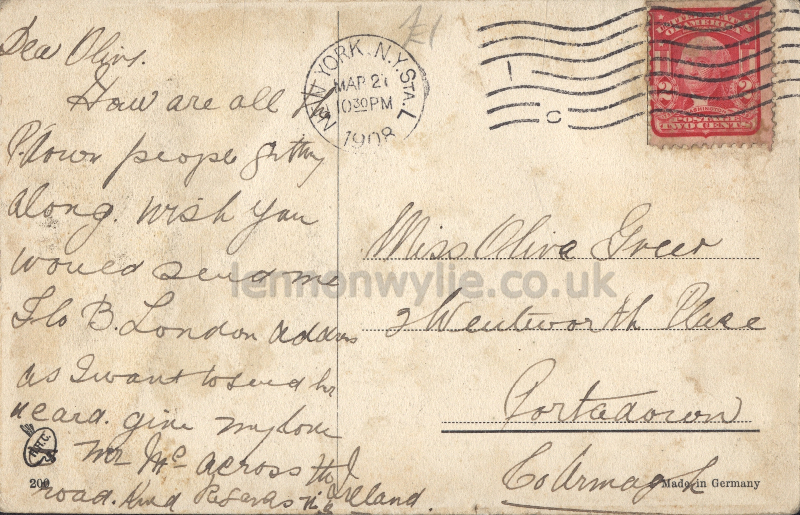 £1
Dear Olive.
How are all
P.down people getting
along. Wish you
would send me
Flo B. London address
as I want to send her
a card. give my love
Mr Mc across the
road. Kind Regards
Ireland.
NEW YORK. N.Y. STA. L
MAR 27
1030PM
1908
UNITED STATES
OF AMERICA
2 2
POSTAGE
TWO CENTS
Miss Olive Greer
2 Wentworth Place
Portadown
Co Armagh
lennonwylie.co.uk
200
Made in Germany